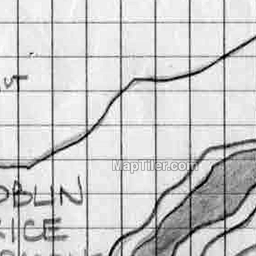 UT
MapTiler.com
OBLIN
RICE